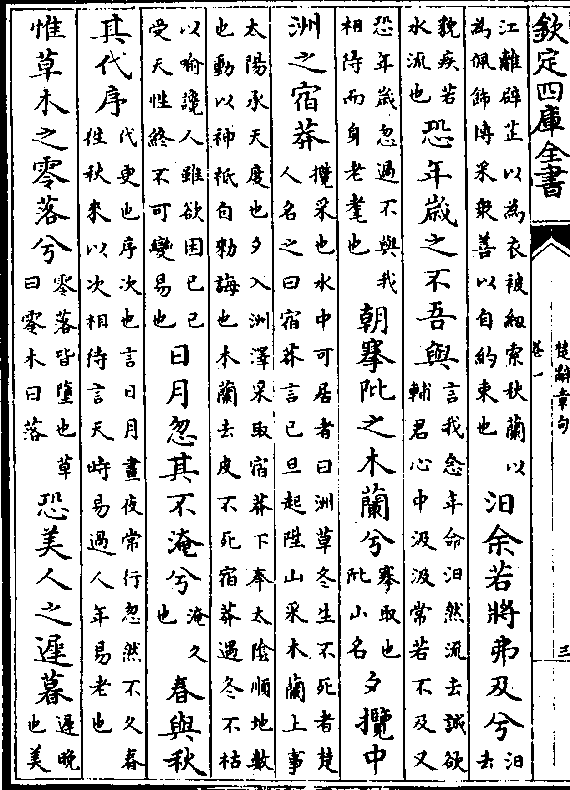 欽定四庫全書
楚辭章句
卷一
三
江離辟芷以為衣被紉索秋蘭以
為佩飾博采衆善以自約束也
汩余若將弗及兮
汩
去
貌疾若
水流也
恐年歲之不吾與
言我念年命汩然流去誠欲
輔君心中汲汲常若不及又
恐年歲忽過不與我
相待而身老耄也
朝搴阰之木蘭兮
搴取也
阰山名
夕攬中
洲之宿莽
攬采也水中可居者曰洲草冬生不死者楚
人名之曰宿莽言已旦起陞山采木蘭上事
太陽承天度也夕入洲澤采取宿莽下奉太陰順地數
也動以神祇自勑誨也木蘭去皮不死宿莽遇冬不枯
以喻讒人雖欲困已已
受天性終不可變易也
日月忽其不淹兮
淹久
也
春與秋
其代序
代更也序次也言日月晝夜常行忽然不久春
往秋來以次相待言天時易過人年易老也
惟草木之零落兮
零落皆墮也草
曰零木曰落
恐美人之遲暮
遲晚
也美